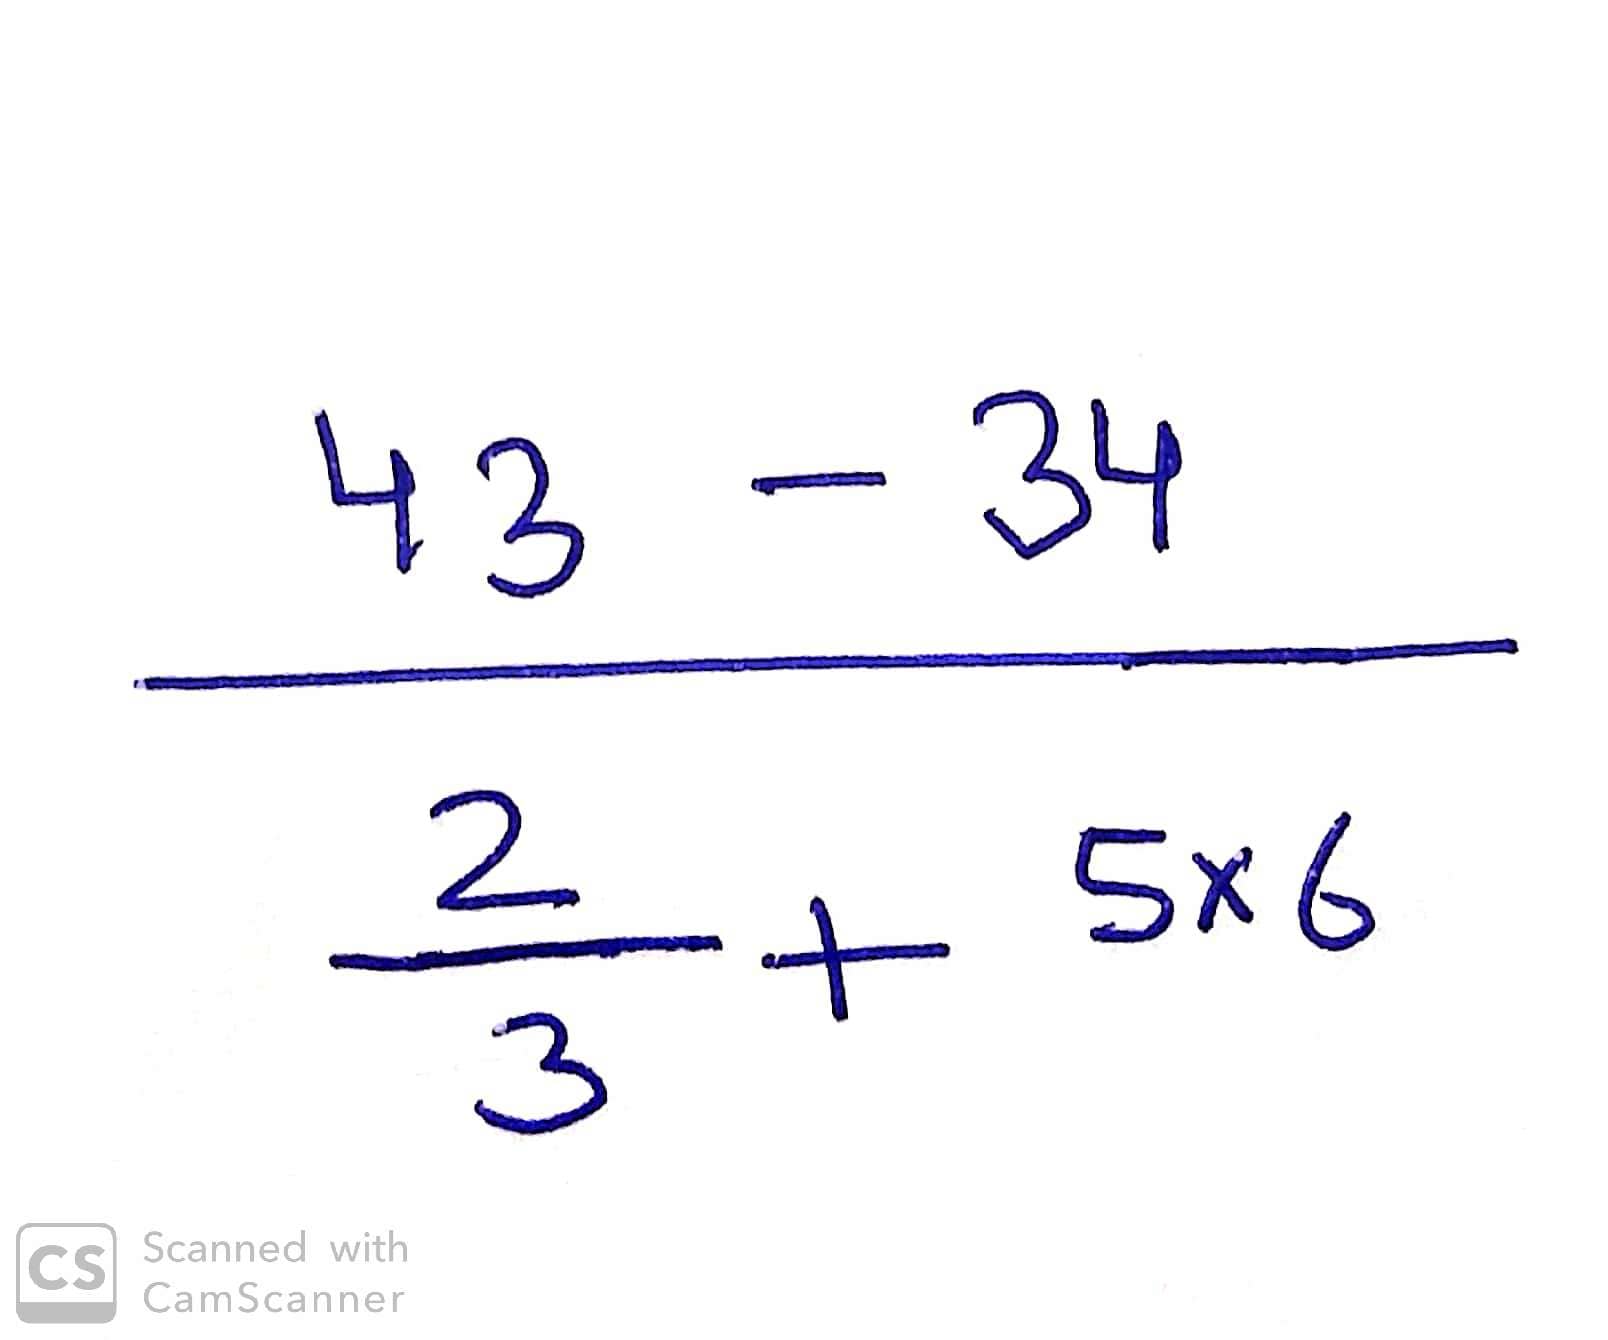 43 - 34
2/3 + 5×6
CS Scanned with
CamScanner